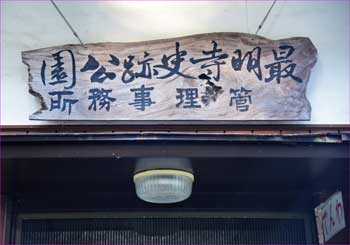 最明寺史跡公園
管理事務所